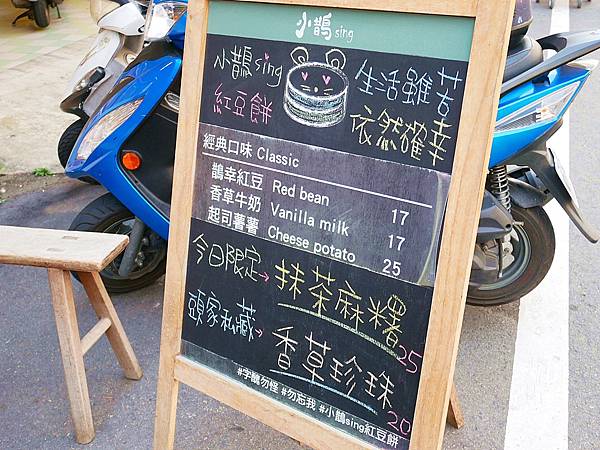 小鵲sing
小鵲sing
紅豆餅
生活雖苦
依然確幸
經典口味 Classic
鵲幸紅豆 Red bean 17
香草牛奶 Vanilla milk 17
起司薯薯 Cheese potato 25
今日限定→抹茶麻糬 25
頭家私藏→香草珍珠 20
#字醜勿怪 #勿忘我 #小鵲sing紅豆餅